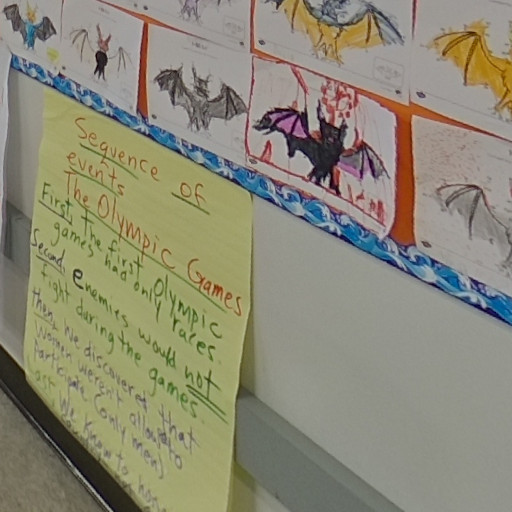 Sequence of
events
The Olympic Games
First, The first Olympic
games had only races.
Second, enemies would not
fight during the games.
then, We discovered that
women weren't allowed to
participate (only men)
Last We know to